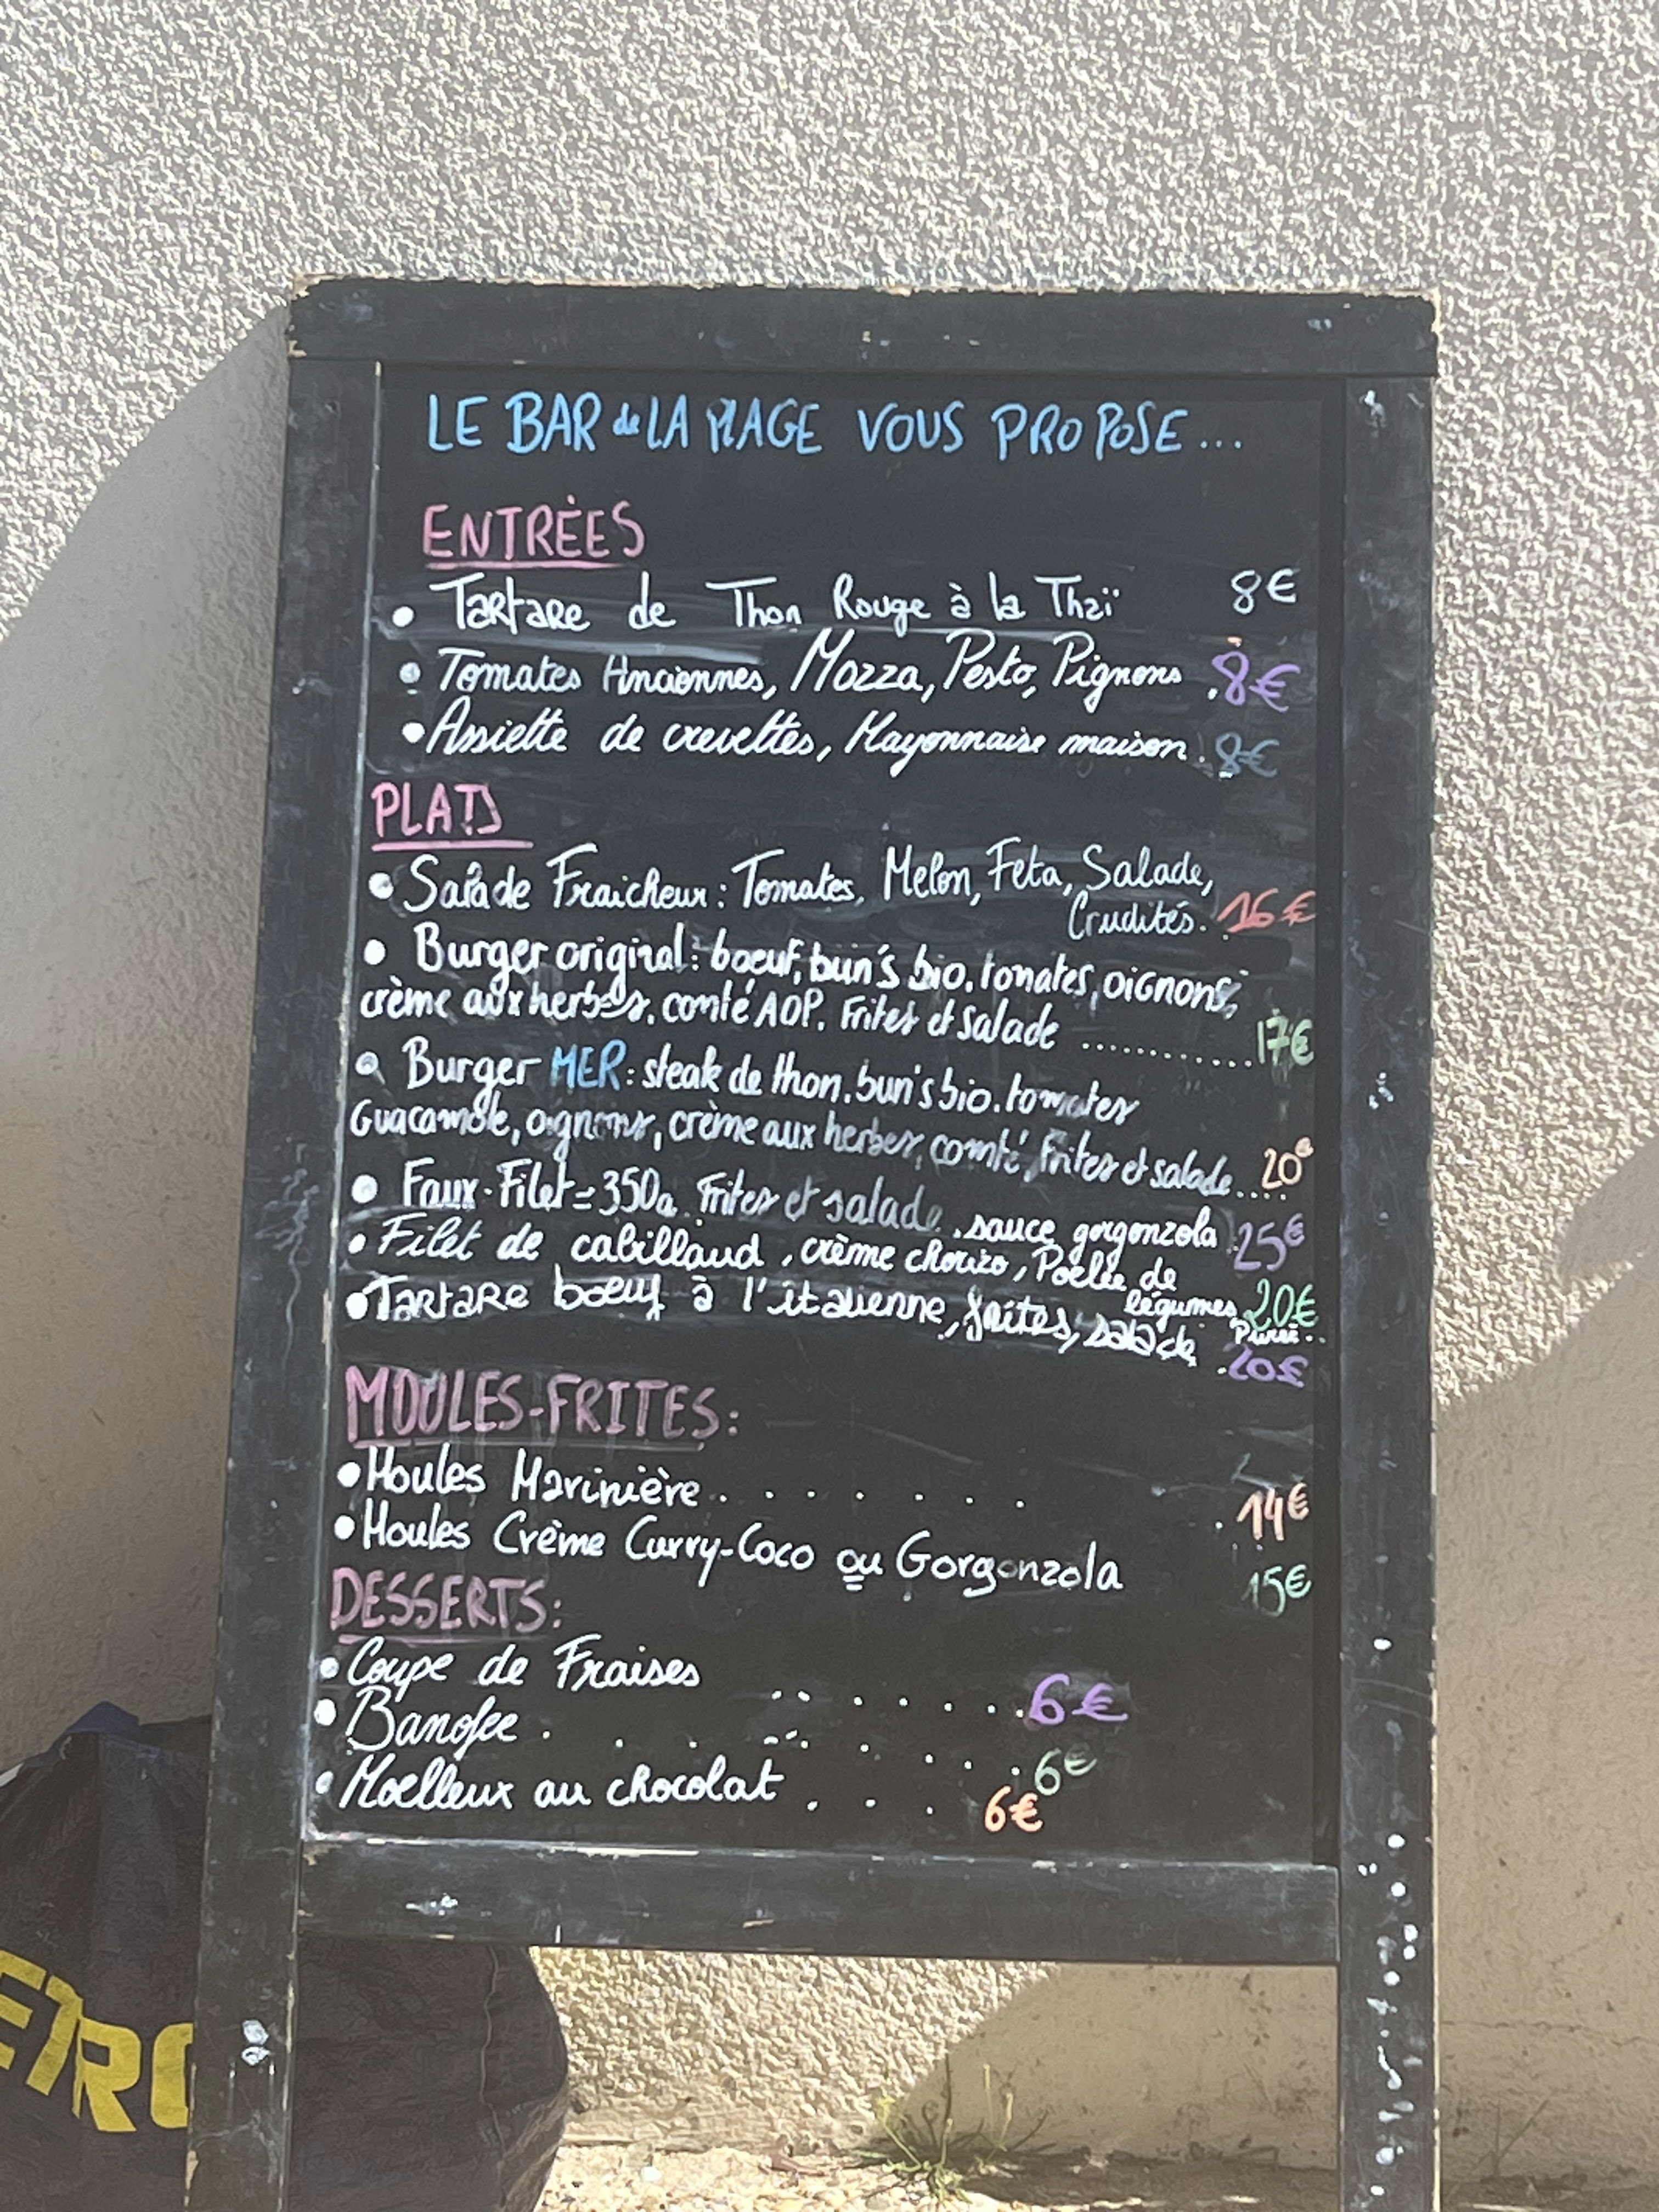 LE BAR de LA PLAGE VOUS PROPOSE...
ENTRÉES
• Tartare de Thon Rouge à la Thaï 8€
• Tomates Anciennes, Mozza, Pesto, Pignons . 8€
• Assiette de crevettes, Mayonnaise maison . 8€
PLATS
• Salade Fraicheur : Tomates, Melon, Feta, Salade,
Crudités. . 16€
• Burger original : boeuf, bun's bio. tomates, oignons,
crème aux herbes. comté AOP. Frites et salade ............ 17€
• Burger MER : steak de thon. bun's bio. tomates
Guacamole, oignons, crème aux herbes, comté, frites et salade..... 20€
• Faux-Filet = 350g. Frites et salade . sauce gorgonzola 25€
• Filet de cabillaud , crème chorizo, Poêlée de
légumes, 20€
Purée..
• Tartare boeuf à l'italienne, frites, salade . 20€
MOULES-FRITES :
• Moules Marinière . . . . . . . . 14€
• Moules Crème Curry-Coco ou Gorgonzola 15€
DESSERTS :
• Coupe de Fraises . . . . . . . . 6€
• Banofee . . . . . . . . . . 6€
• Moelleux au chocolat . . . . 6€
ETRO